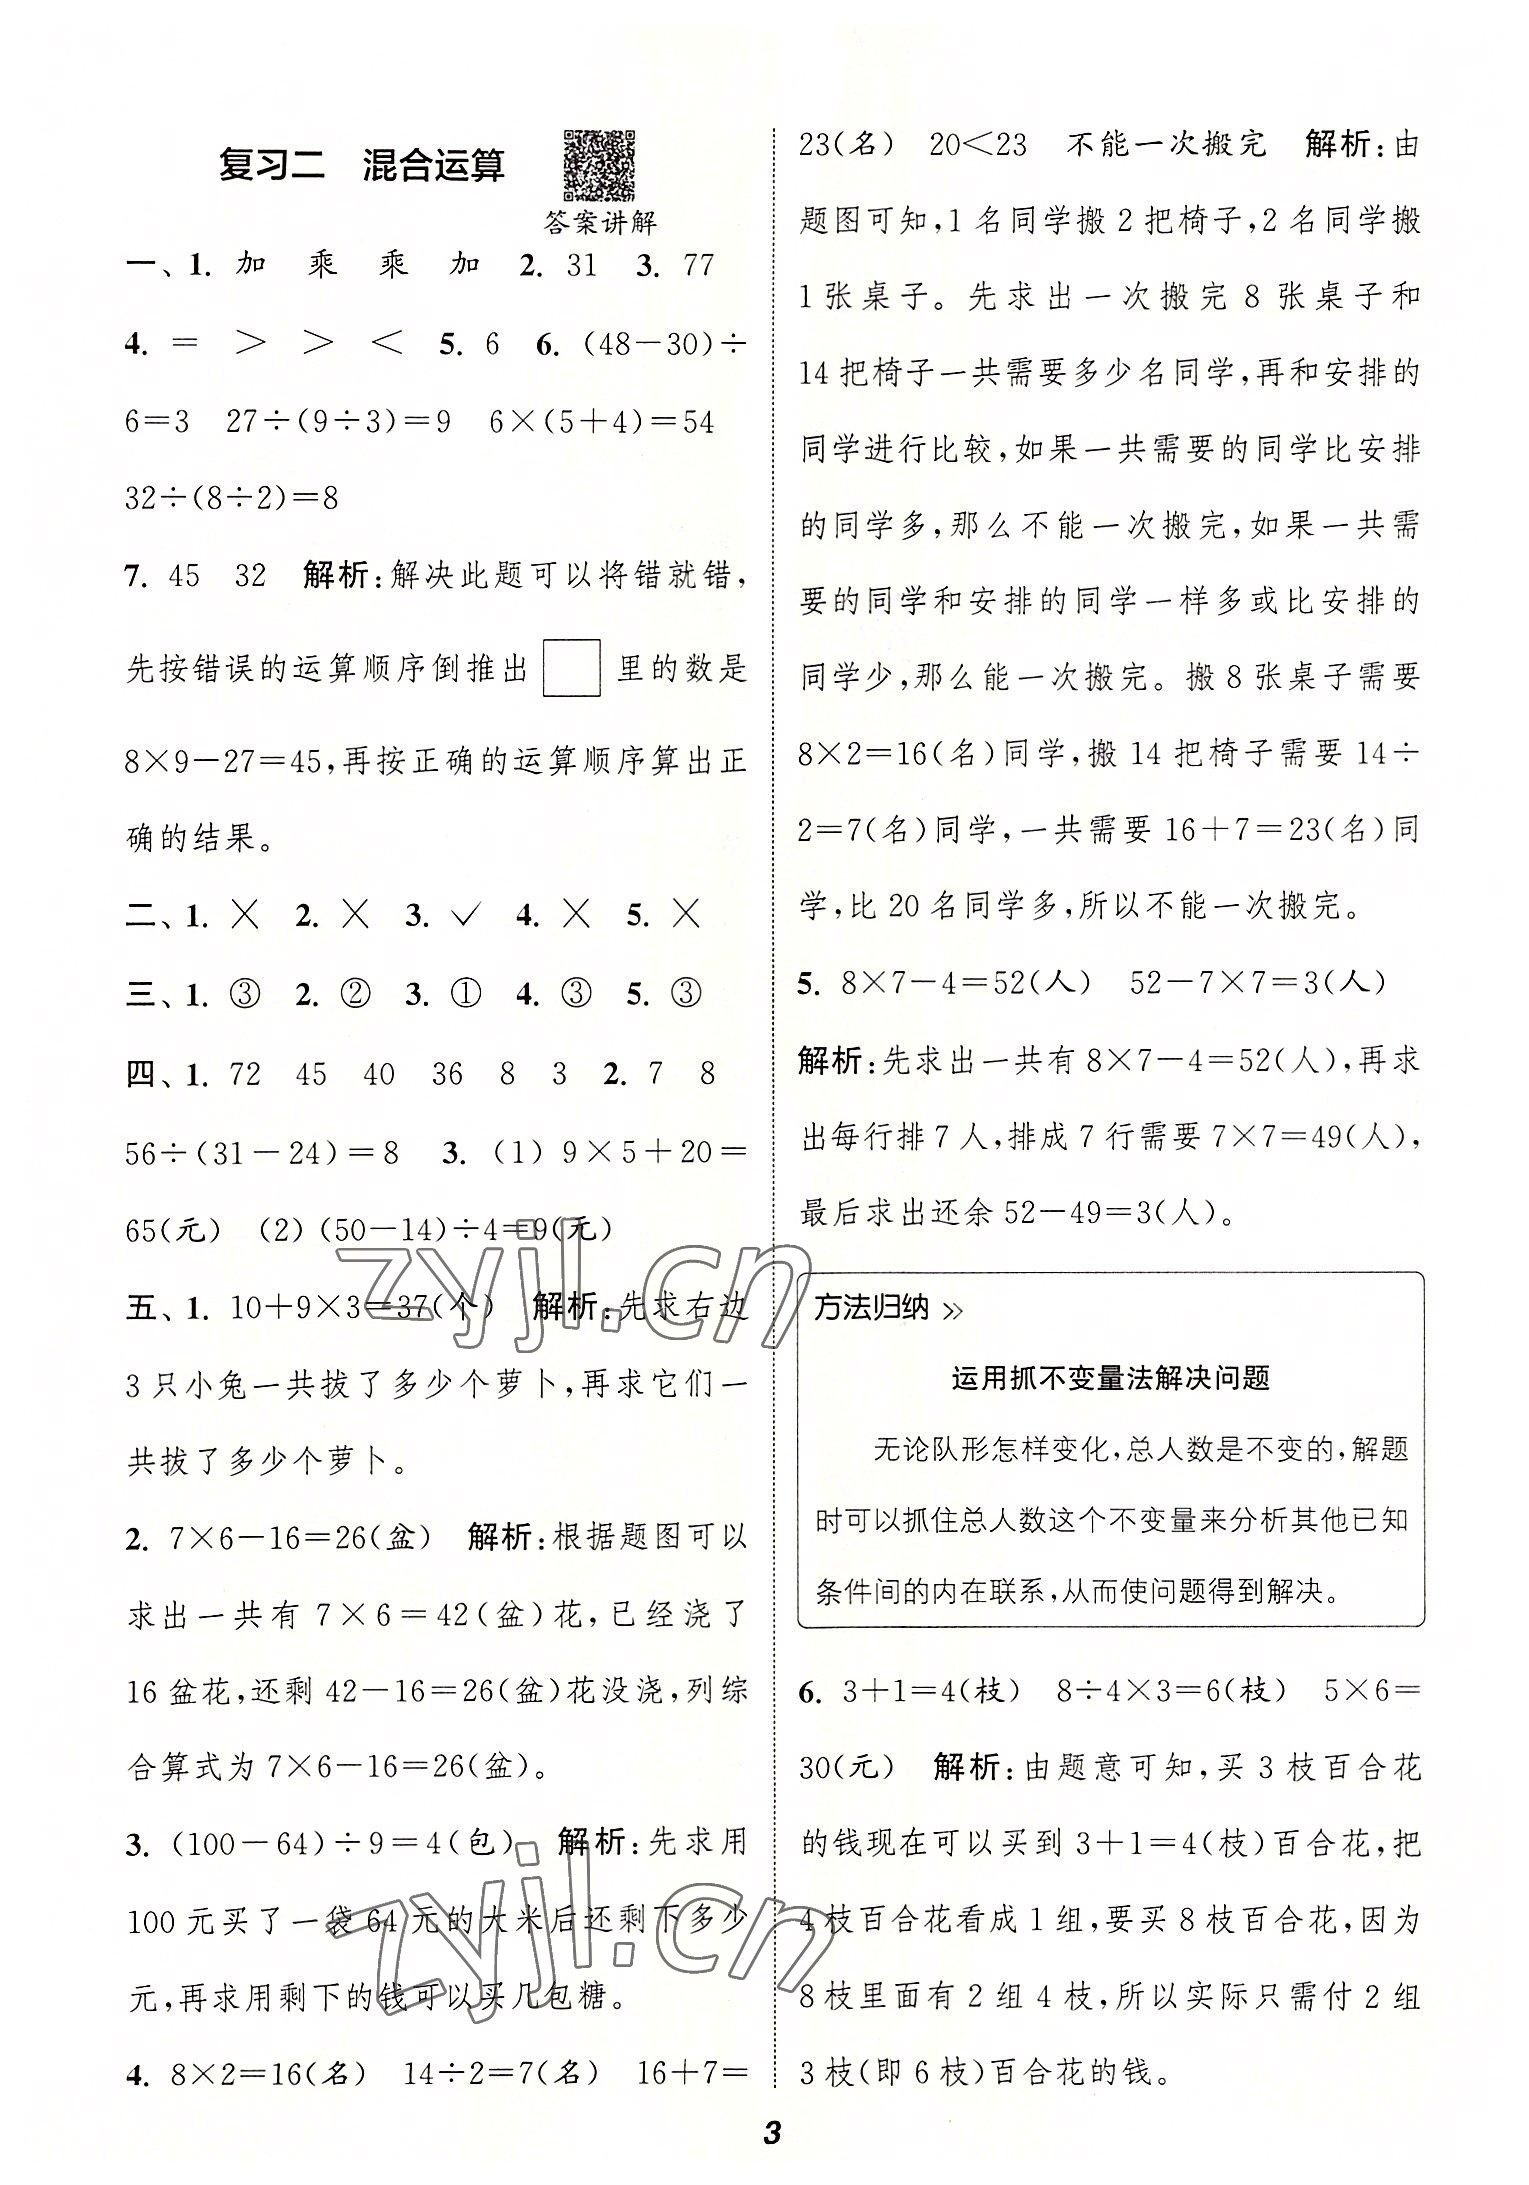 复习二　混合运算
答案讲解
一、1. 加　乘　乘　加　2. 31　3. 77
4. ＝　＞　＞　＜　5. 6　6. (48－30)÷
6＝3　27÷(9÷3)＝9　6×(5＋4)＝54
32÷(8÷2)＝8
7. 45　32　解析:解决此题可以将错就错,
先按错误的运算顺序倒推出□里的数是
8×9－27＝45,再按正确的运算顺序算出正
确的结果。
二、1. ╳　2. ╳　3. ✓　4. ╳　5. ╳
三、1. ③　2. ②　3. ①　4. ③　5. ③
四、1. 72　45　40　36　8　3　2. 7　8
56÷(31－24)＝8　3. (1) 9×5＋20＝
65(元)　(2) (50－14)÷4＝9(元)
五、1. 10＋9×3＝37(个)　解析:先求右边
3只小兔一共拔了多少个萝卜,再求它们一
共拔了多少个萝卜。
2. 7×6－16＝26(盆)　解析:根据题图可以
求出一共有7×6＝42(盆)花,已经浇了
16盆花,还剩42－16＝26(盆)花没浇,列综
合算式为7×6－16＝26(盆)。
3. (100－64)÷9＝4(包)　解析:先求用
100元买了一袋64元的大米后还剩下多少
元,再求用剩下的钱可以买几包糖。
4. 8×2＝16(名)　14÷2＝7(名)　16＋7＝
23(名)　20＜23　不能一次搬完　解析:由
题图可知,1名同学搬2把椅子,2名同学搬
1张桌子。先求出一次搬完8张桌子和
14把椅子一共需要多少名同学,再和安排的
同学进行比较,如果一共需要的同学比安排
的同学多,那么不能一次搬完,如果一共需
要的同学和安排的同学一样多或比安排的
同学少,那么能一次搬完。搬8张桌子需要
8×2＝16(名)同学,搬14把椅子需要14÷
2＝7(名)同学,一共需要16＋7＝23(名)同
学,比20名同学多,所以不能一次搬完。
5. 8×7－4＝52(人)　52－7×7＝3(人)
解析:先求出一共有8×7－4＝52(人),再求
出每行排7人,排成7行需要7×7＝49(人),
最后求出还余52－49＝3(人)。
方法归纳 »
运用抓不变量法解决问题
无论队形怎样变化,总人数是不变的,解题
时可以抓住总人数这个不变量来分析其他已知
条件间的内在联系,从而使问题得到解决。
6. 3＋1＝4(枝)　8÷4×3＝6(枝)　5×6＝
30(元)　解析:由题意可知,买3枝百合花
的钱现在可以买到3＋1＝4(枝)百合花,把
4枝百合花看成1组,要买8枝百合花,因为
8枝里面有2组4枝,所以实际只需付2组
3枝(即6枝)百合花的钱。
3
zyjl.cn
zyjl.cn